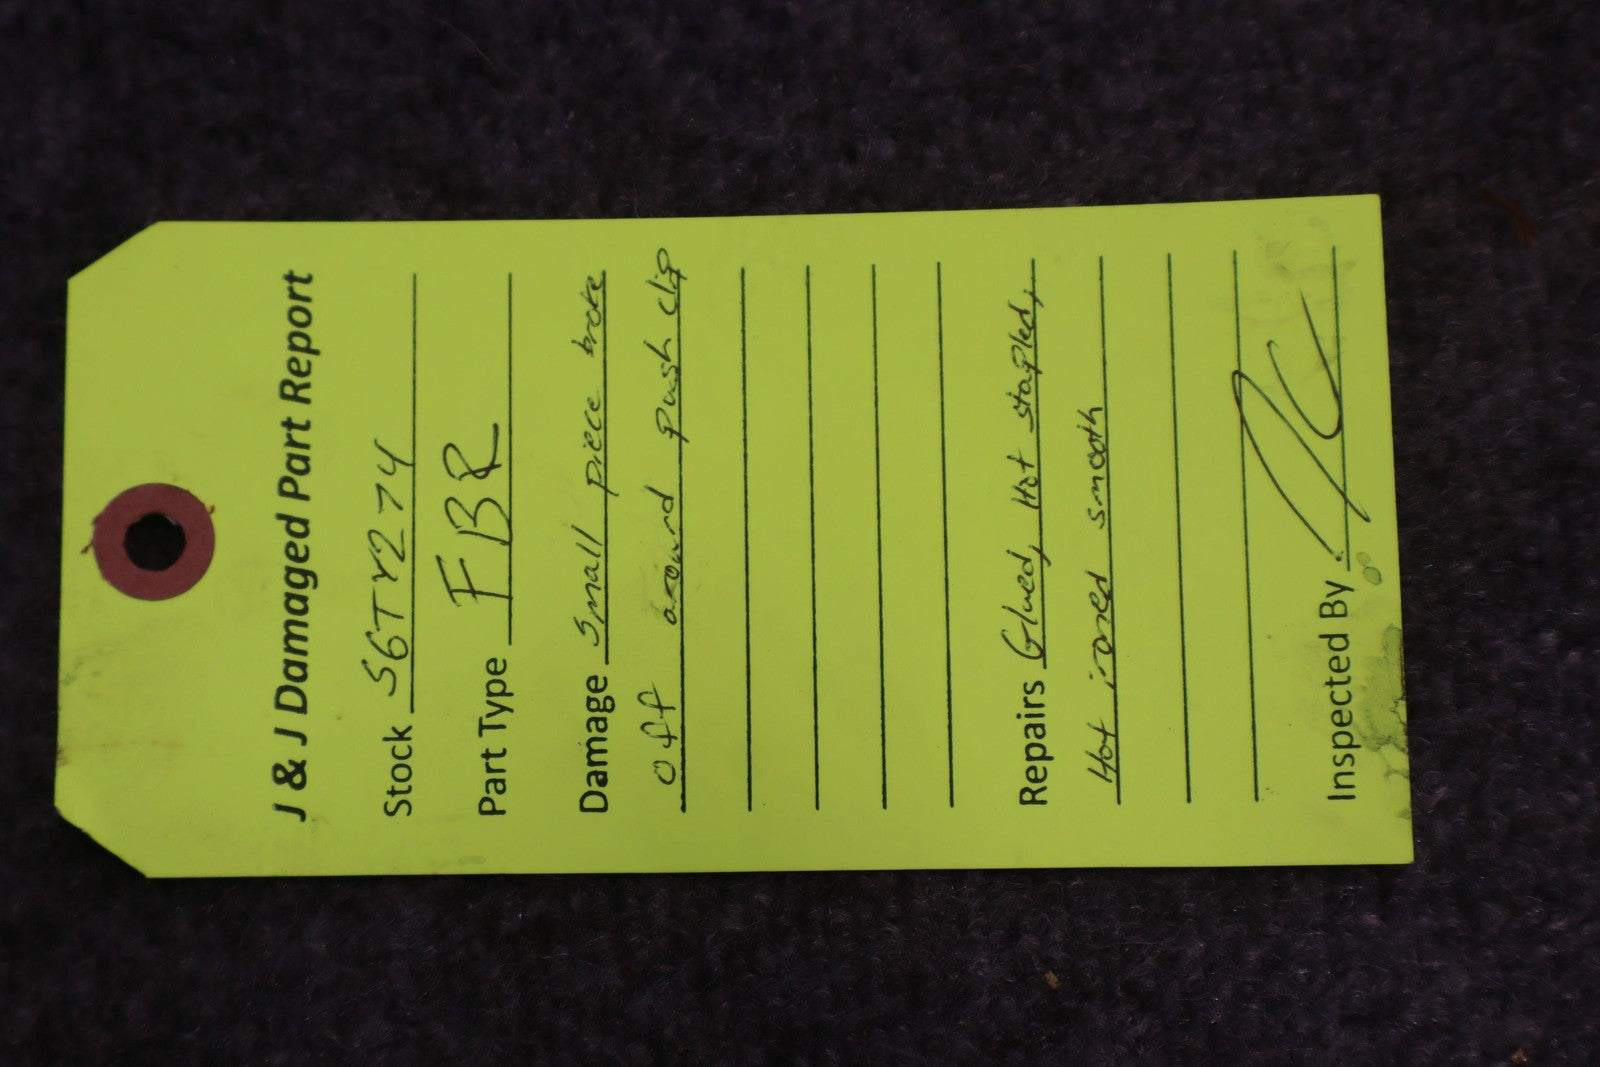 J & J Damaged Part Report
Stock S6TY274
Part Type FBR
Damage Small piece broke
off around push clip
Repairs Glued, Hot stapled,
Hot ironed smooth
Inspected By